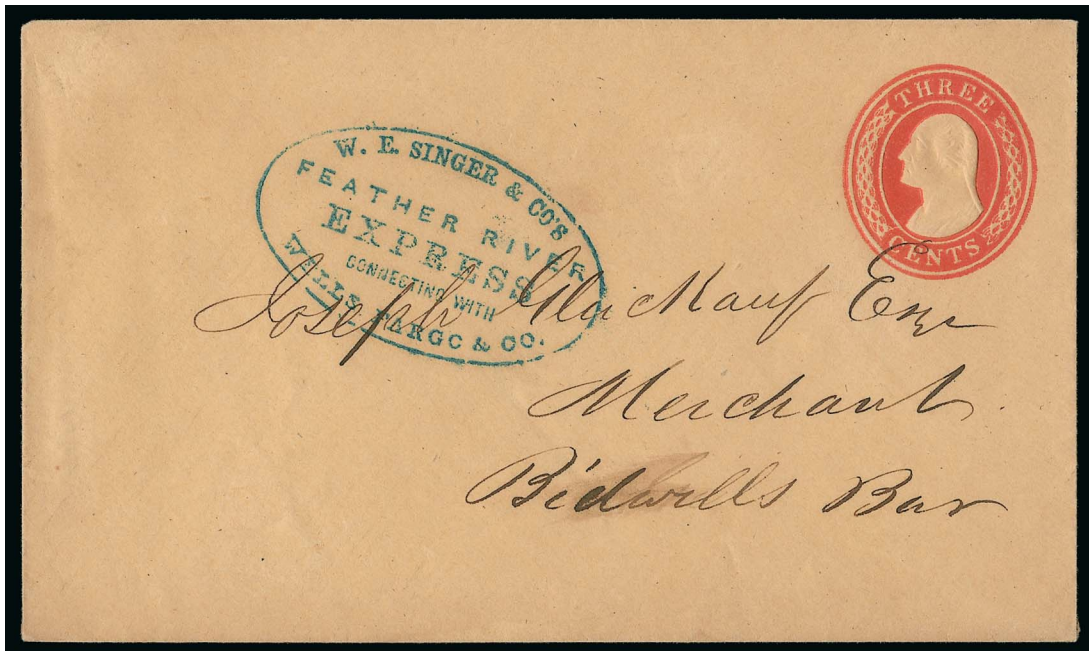 THREE
CENTS
W. E. SINGER & CO'S
FEATHER RIVER
EXPRESS
CONNECTING WITH
WELLS FARGO & CO.
Joseph Gluckauf Esqr
Merchant
Bidwills Bar